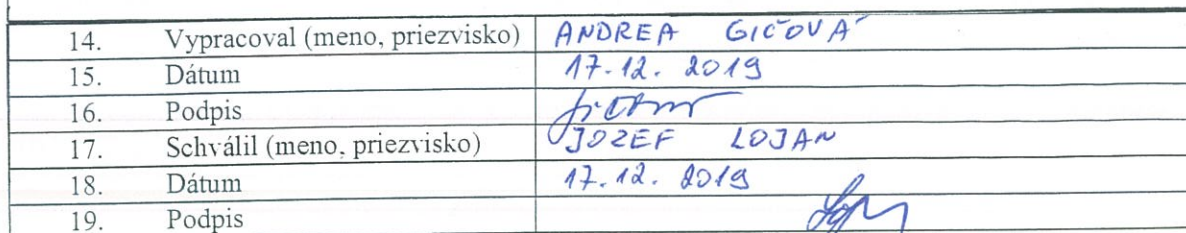 14. Vypracoval (meno, priezvisko) ANDREA GIČOVÁ
15. Dátum 17.12. 2019
16. Podpis
17. Schválil (meno, priezvisko) JOZEF LOJAN
18. Dátum 17.12. 2019
19. Podpis